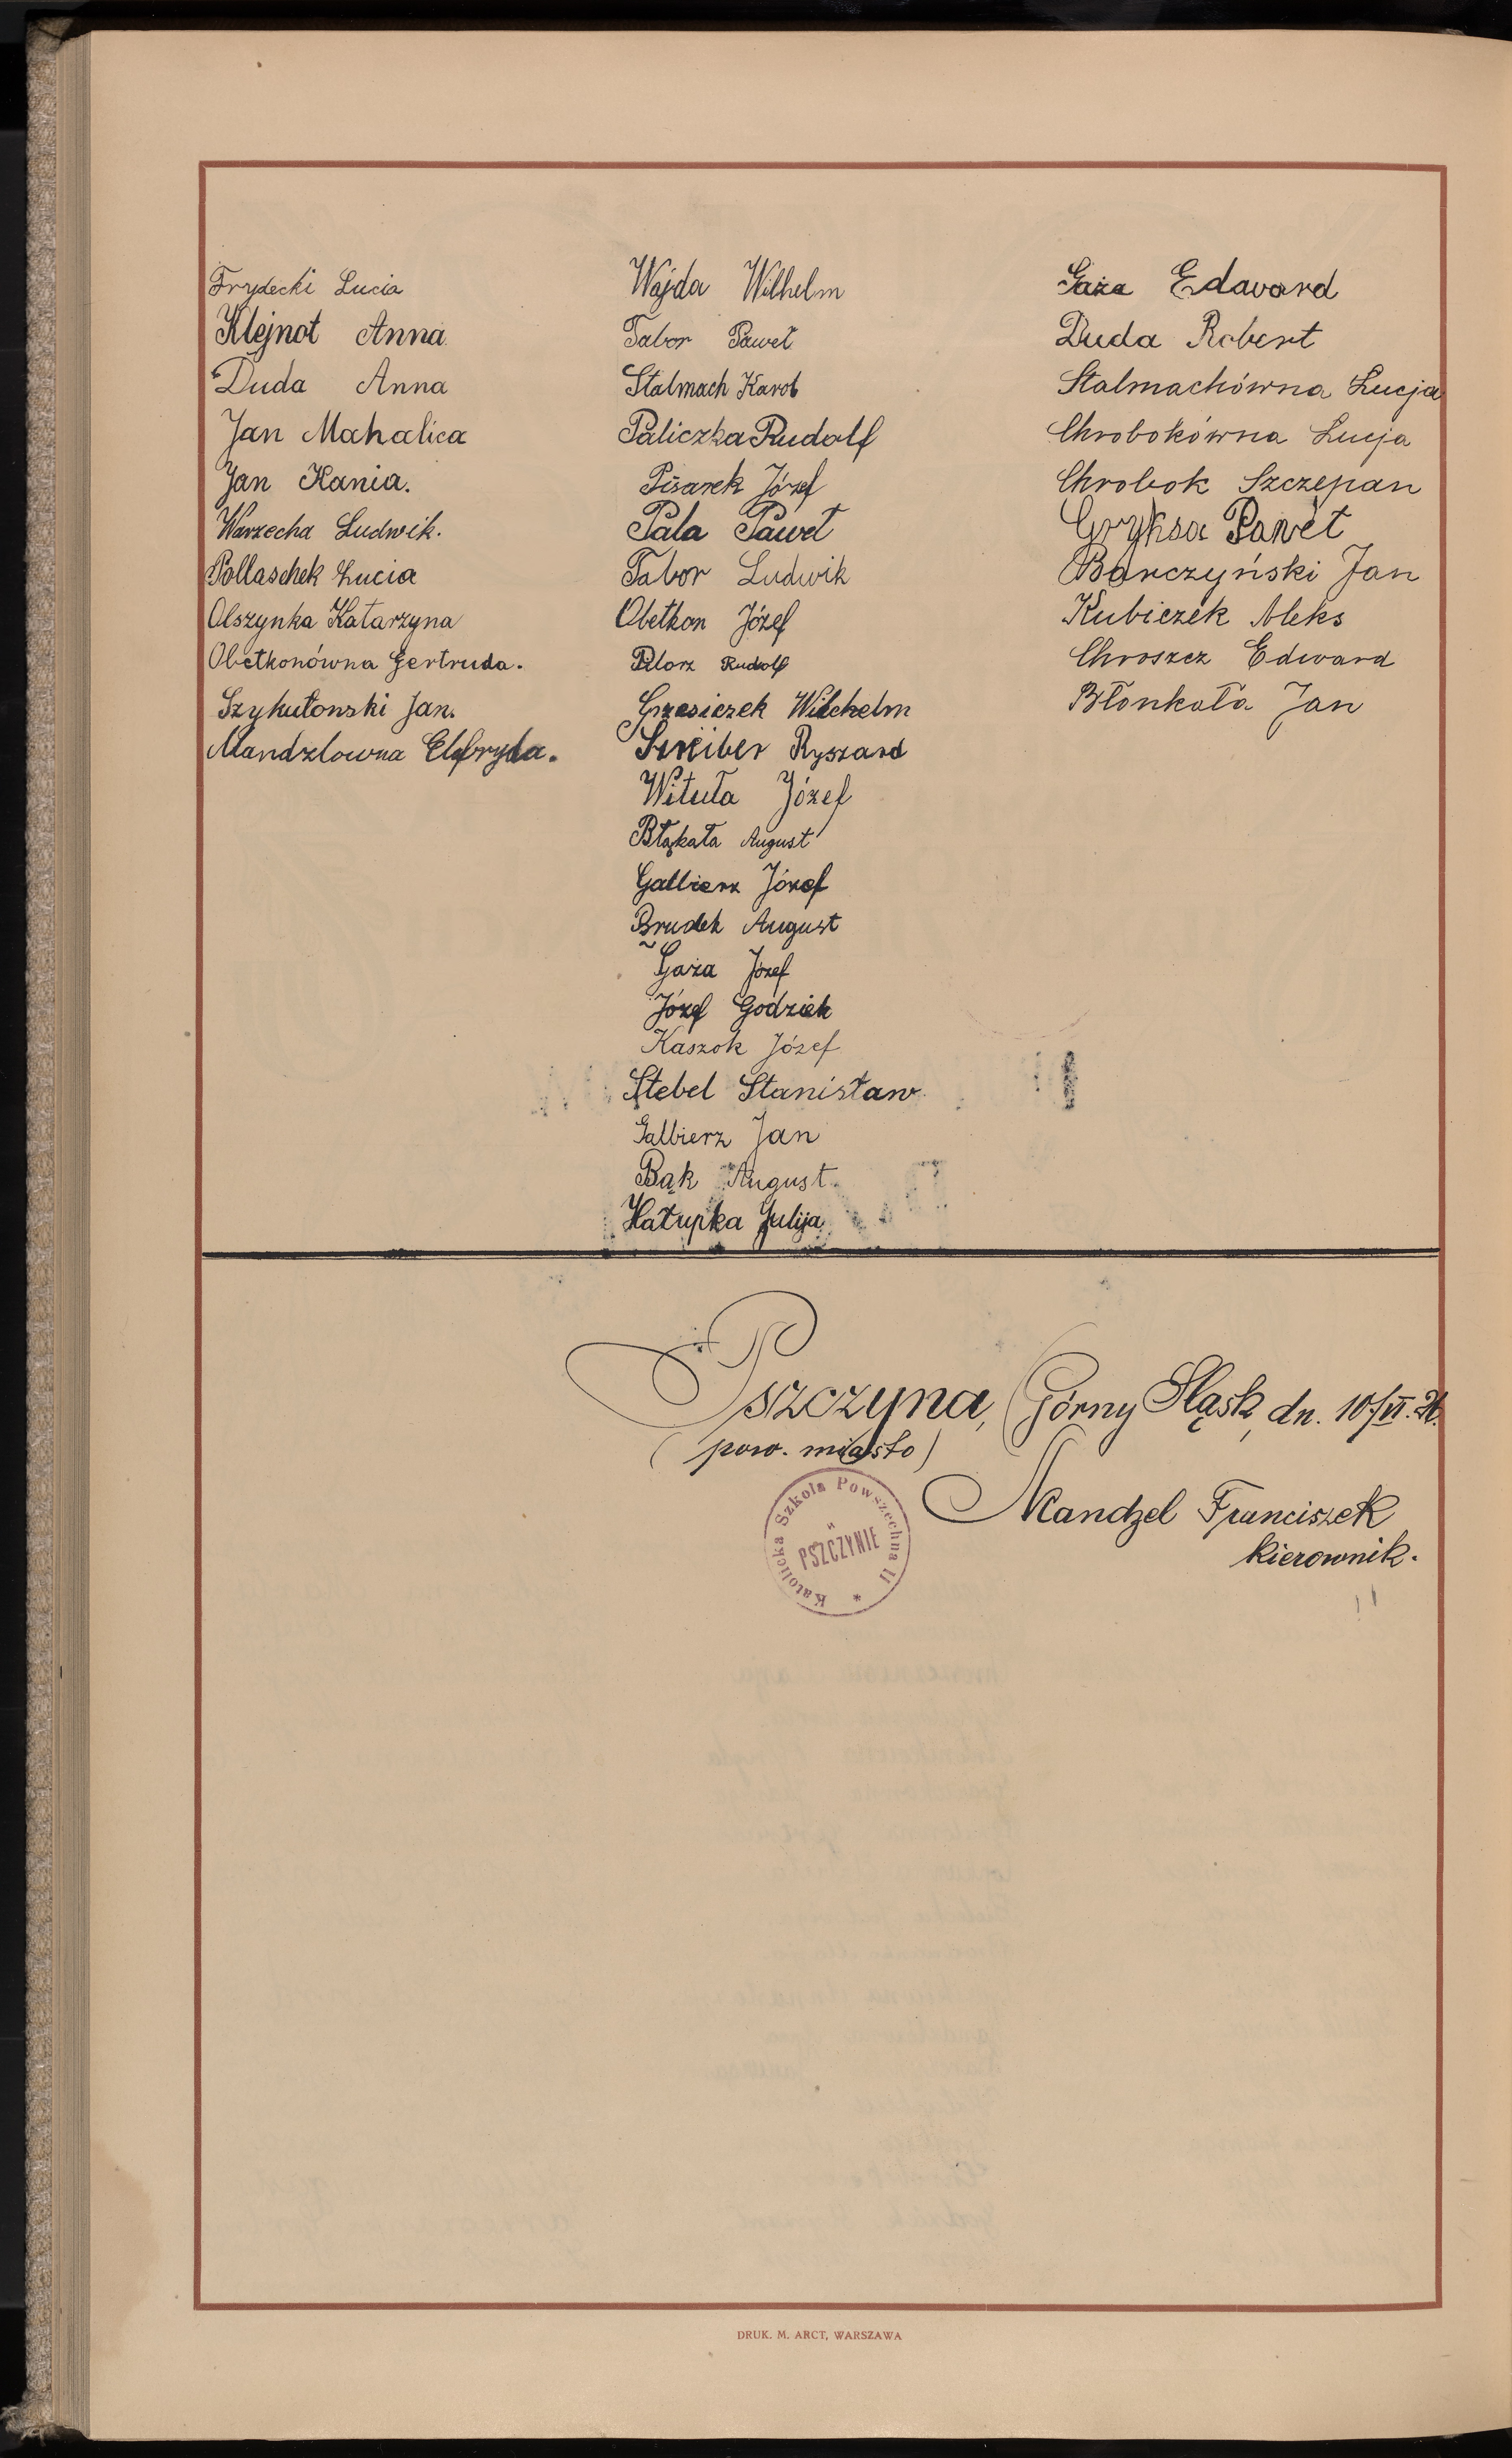 Frydecki Lucia
Klejnot Anna
Duda Anna
Jan Mahalica
Jan Kania.
Warzecha Ludwik.
Pollaschek Łucia
Olszynka Katarzyna
Obetkonówna Gertruda.
Szykutonski Jan.
Mandzlowna Elfryda.
Wajda Wilhelm
Tabor Paweł
Stalmach Karol
Paliczka Rudolf
Pisarek Józef
Pala Paweł
Tabor Ludwik
Obetkon Józef
Pilorz Rudolf
Grzesiczek Wilchelm
Szreiber Ryszard
Wituła Józef
Błąkała August
Galbierz Józef
Brudek August
Gaża Józef
Józef Godziek
Kaszok Józef
Stebel Stanisław
Galbierz Jan
Bąk August
Hatupka Julija
Gaża Edward
Duda Robert
Stalmachówna Łucja
Chrobokówna Łucja
Chrobok Szczepan
Gryksa Paweł
Barczyński Jan
Kubiczek Aleks
Chroszcz Edward
Błonkała Jan
Pszczyna, Górny Śląsk, dn. 10/VI. 26.
(pow. miasto)
Katolicka Szkoła Powszechna II
w
PSZCZYNIE
*
Mandzel Franciszek
kierownik.
DRUK. M. ARCT, WARSZAWA